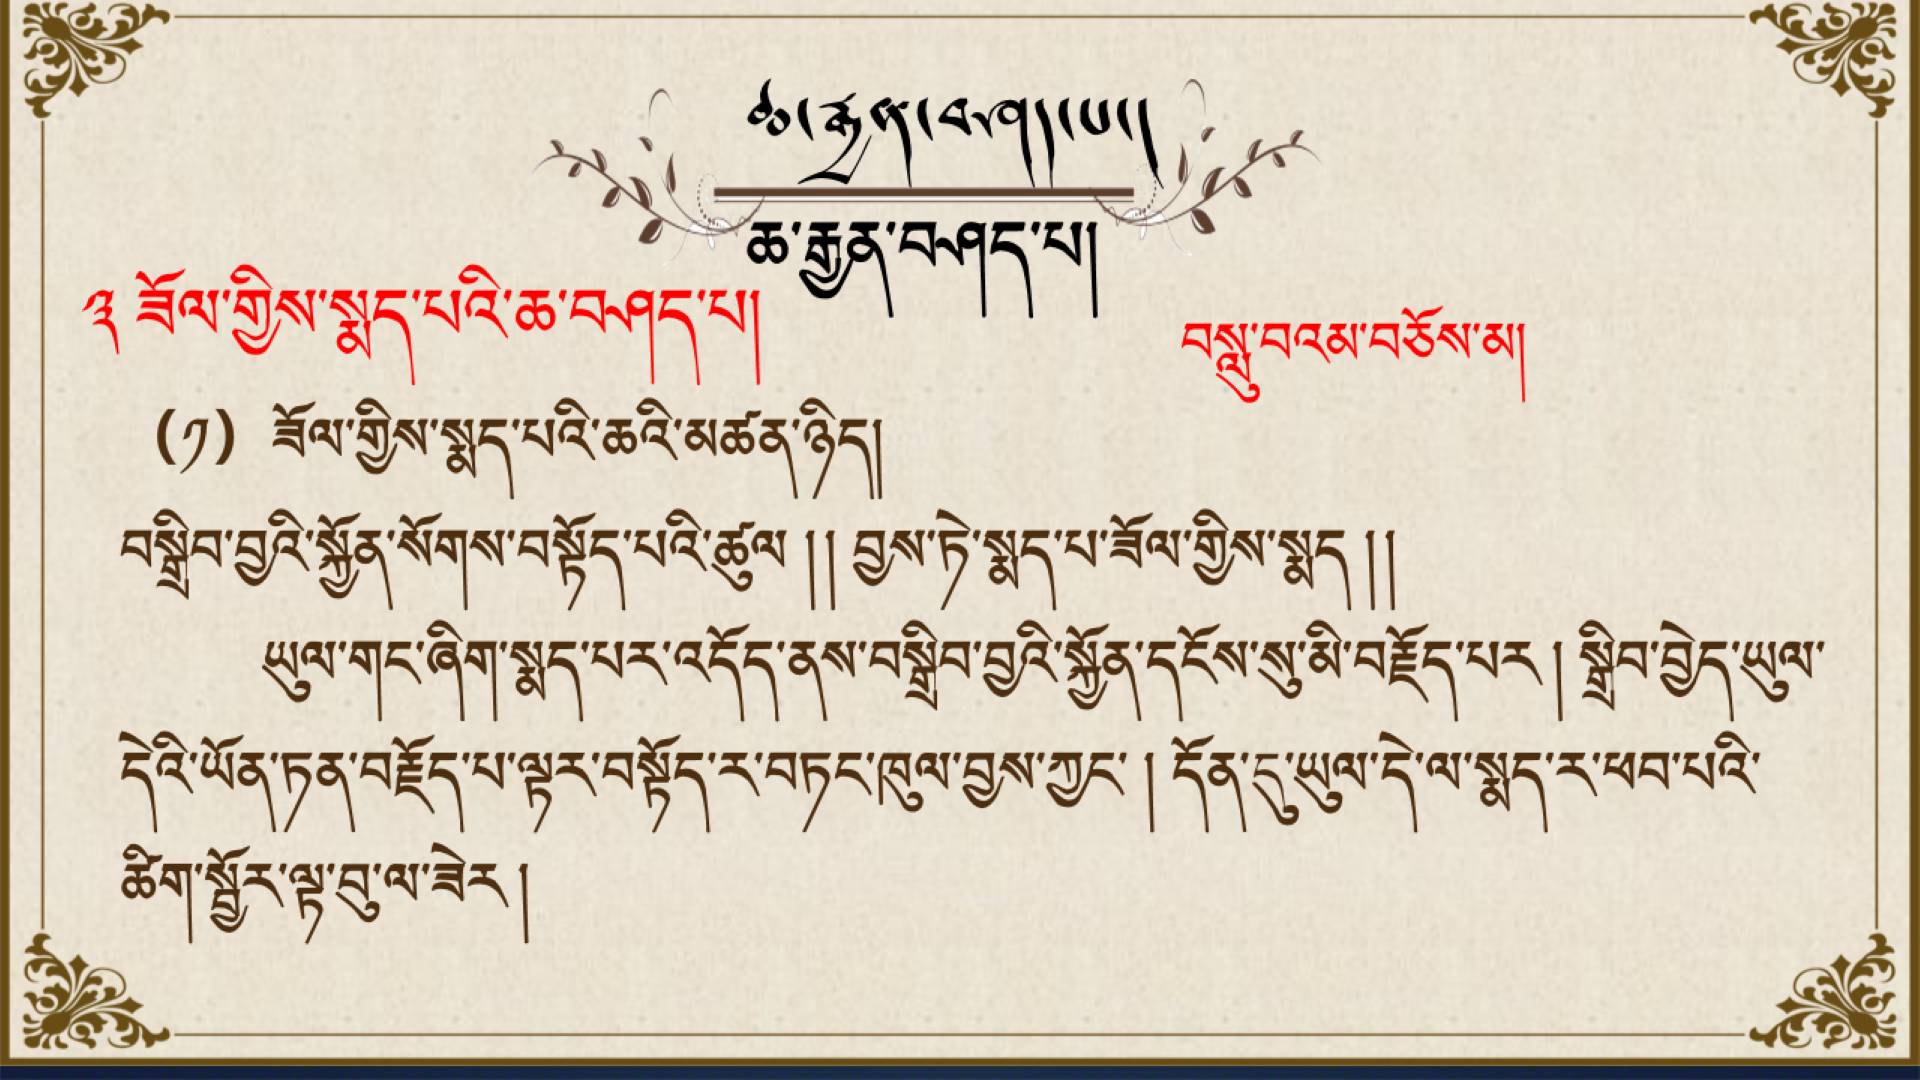 ཆ་རྒྱན་བཤད་པ།
ཆ་རྒྱན་བཤད་པ།
༣ ཟོལ་གྱིས་སྨད་པའི་ཆ་བཤད་པ།
བསླུ་བའམ་བཅོས་མ།
(༡) ཟོལ་གྱིས་སྨད་པའི་ཆའི་མཚན་ཉིད།
བསྒྲིབ་བྱའི་སྐྱོན་སོགས་བསྟོད་པའི་ཚུལ །། བྱས་ཏེ་སྨད་པ་ཟོལ་གྱིས་སྨད །།
ཡུལ་གང་ཞིག་སྨད་པར་འདོད་ནས་བསྒྲིབ་བྱའི་སྐྱོན་དངོས་སུ་མི་བརྗོད་པར ། སྒྲིབ་བྱེད་ཡུལ་
དེའི་ཡོན་ཏན་བརྗོད་པ་ལྟར་བསྟོད་ར་བཏང་ཁུལ་བྱས་ཀྱང་ ། དོན་དུ་ཡུལ་དེ་ལ་སྨད་ར་ཕབ་པའི་
ཚིག་སྦྱོར་ལྟ་བུ་ལ་ཟེར །